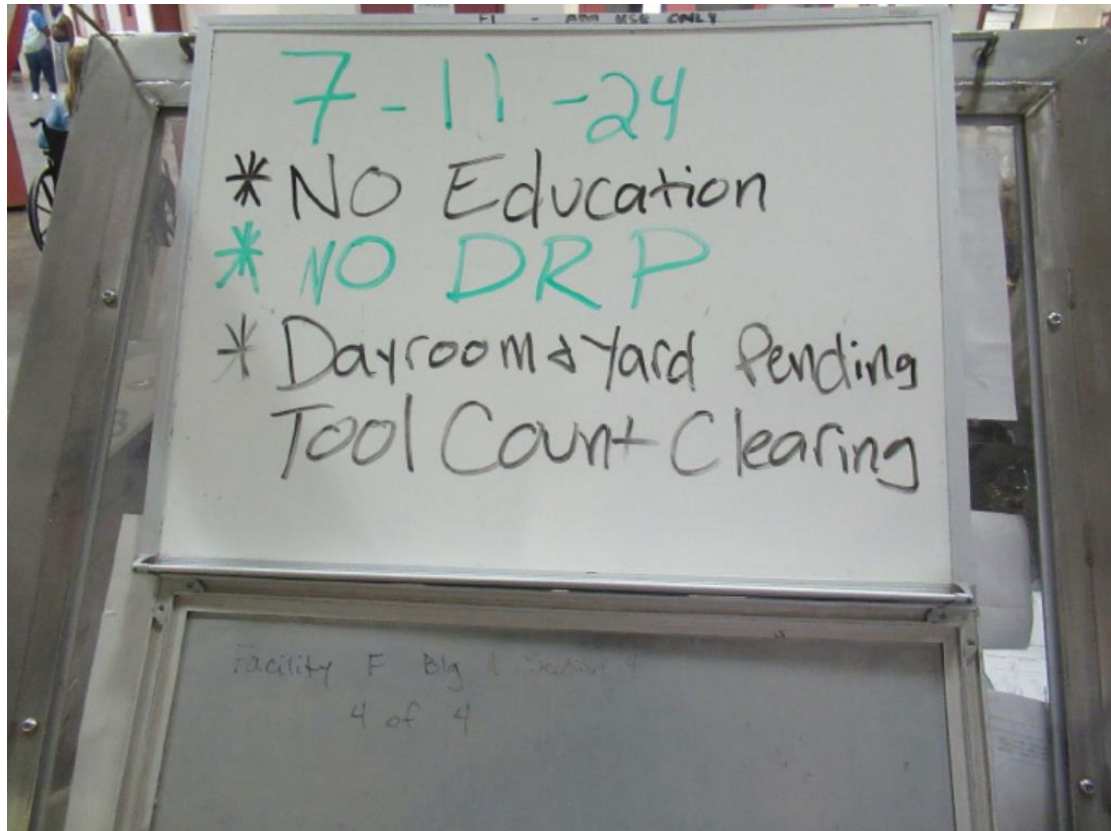 F1 - ADA USE ONLY
7-11-24
*NO Education
*NO DRP
*Dayroom & Yard Pending
Tool Count Clearing
Facility F Blg 1 Section 4
4 of 4